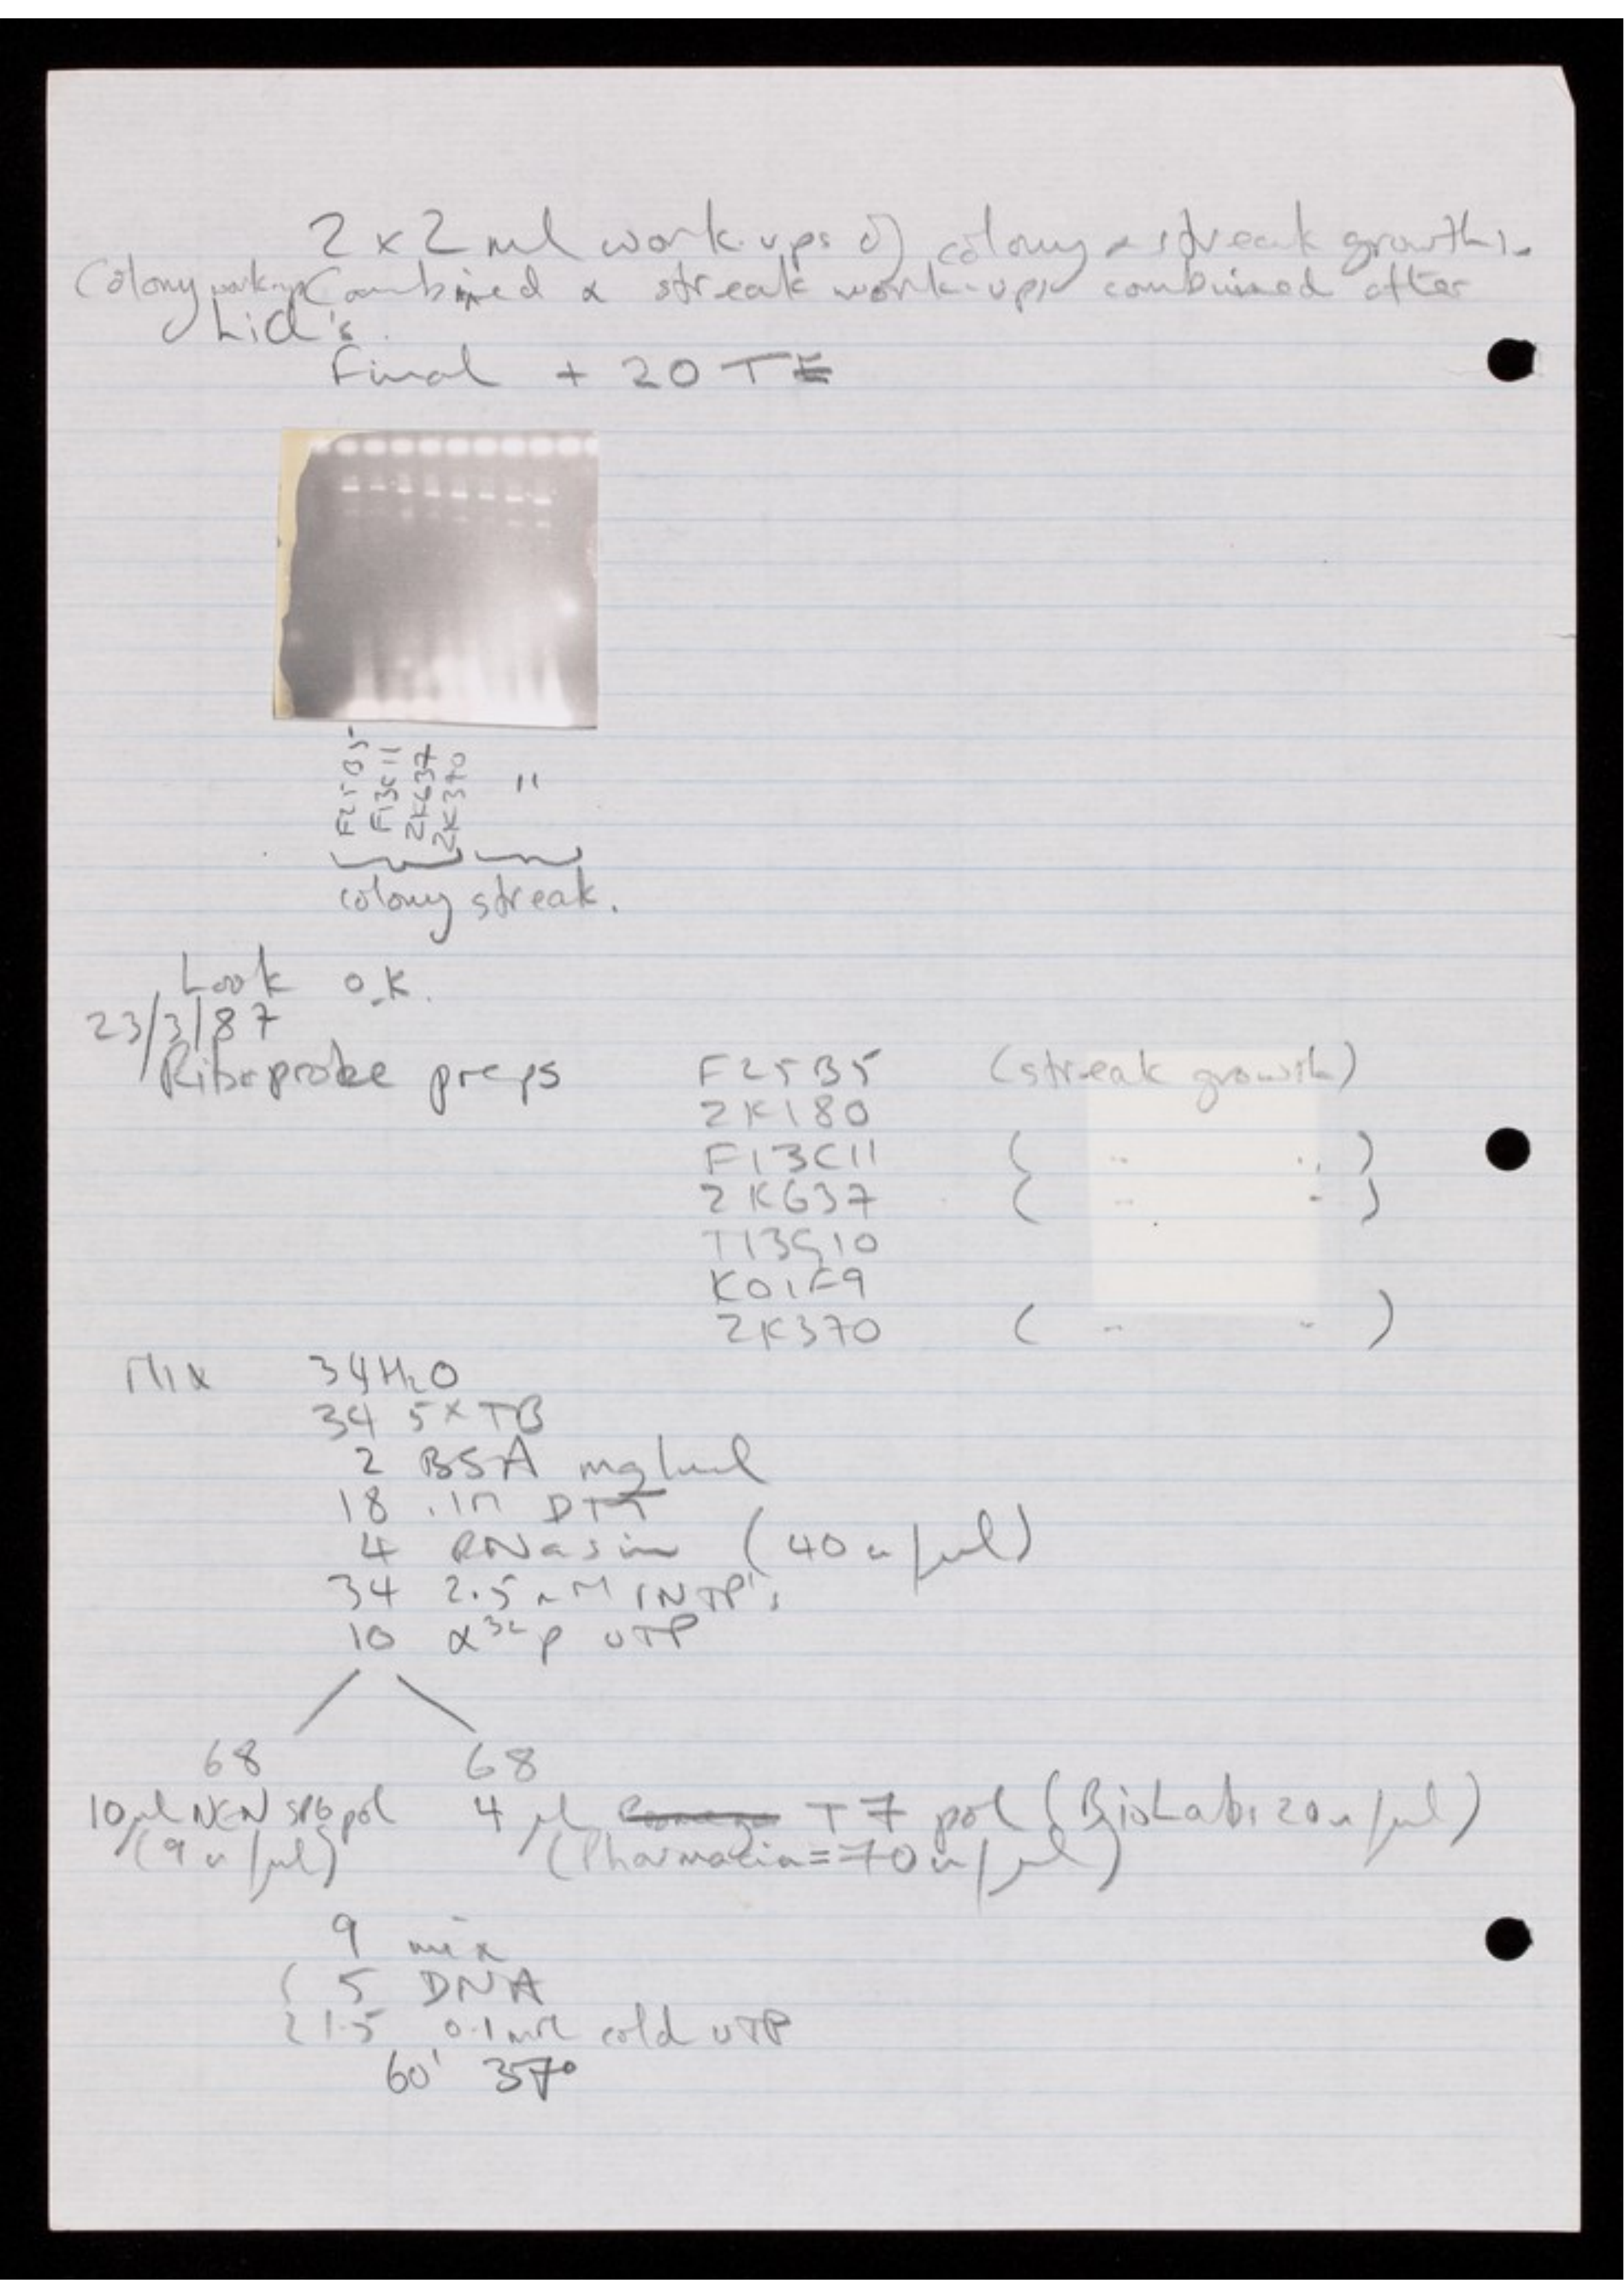 2 x 2 ml work-ups of colony & streak growths.
Colony work-ups Combined & streak work-ups combined after
LiCl's.
Final + 20 TE
F25B5 F13C11 ZK637 ZK370 "
colony streak.
Look o.K.
23/3/87
Riboprobe preps F25B5 (streak growth)
ZK180
F13C11 ( " " )
ZK637 ( " " )
T13G10
K01F9
ZK370 ( " " )
Mix 34 H2O
34 5x TB
2 BSA mg/ml
18 .1M DTT
4 RNasin (40 u/µl)
34 2.5 mM rNTP's
10 α32P UTP
68 68
10 µl NEN SP6 pol 4 µl T7 pol (BioLabs 20 u/µl)
(9 u/µl) (Pharmacia = 70 u/µl)
9 mix
5 DNA
1.5 0.1 mM cold UTP
60' 37°